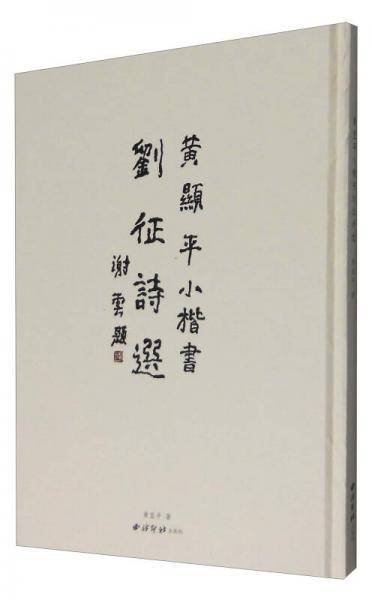 黃顯平小楷書
劉征詩選
謝雲題
黄显平 著
西泠印社出版社